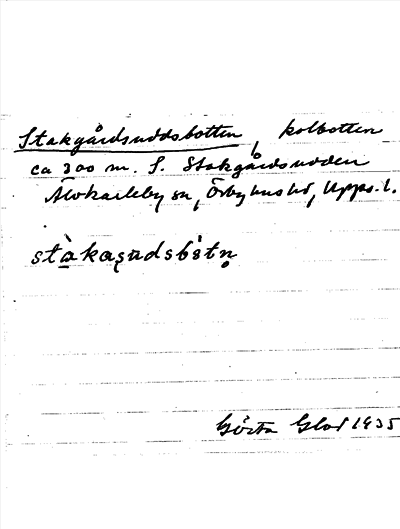 Stakgårdsuddsbotten, kolbotten
ca 300 m. S. Stakgårdsudden
Älvkarleby sn, Örbyhus hd, Upps. l.
stàkaşudsbòtn̥
Gösta Glad 1935